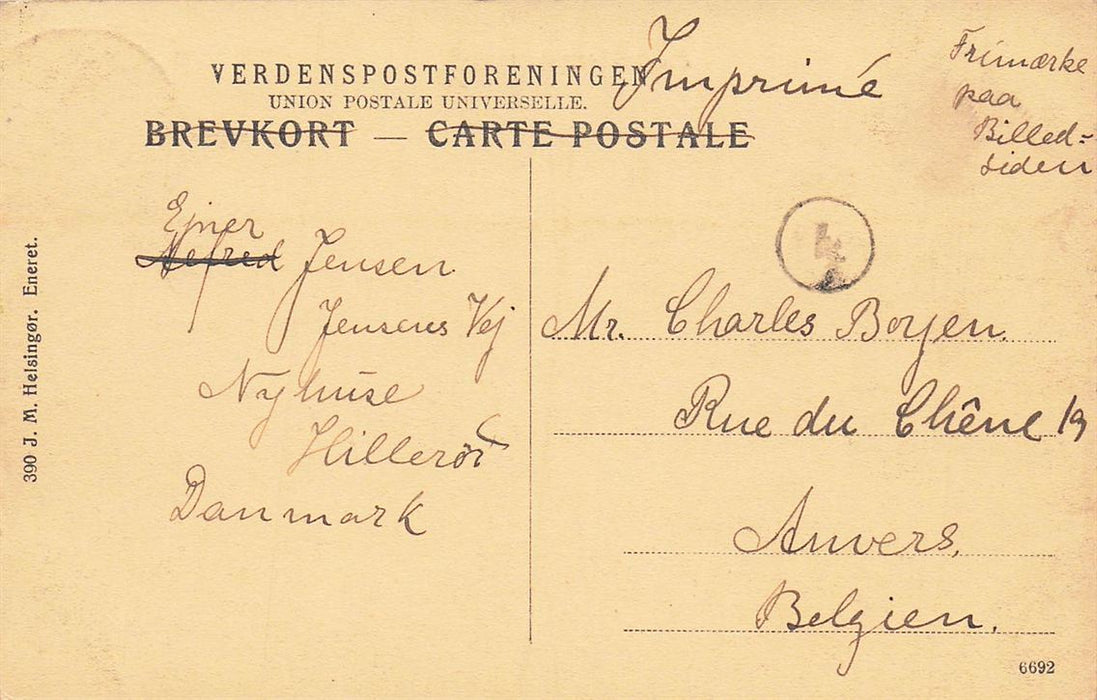 VERDENSPOSTFORENINGEN
UNION POSTALE UNIVERSELLE.
BREVKORT — CARTE POSTALE
Imprimé
Frimærke
paa
Billed-
siden
Ejner
Alfred Jensen
Jensens Vej
Nyhuse
Hillerød
Danmark
4
Mr. Charles Boyen.
Rue du Chêne 19
Anvers,
Belgien.
390 J. M. Helsingør. Eneret.
6692